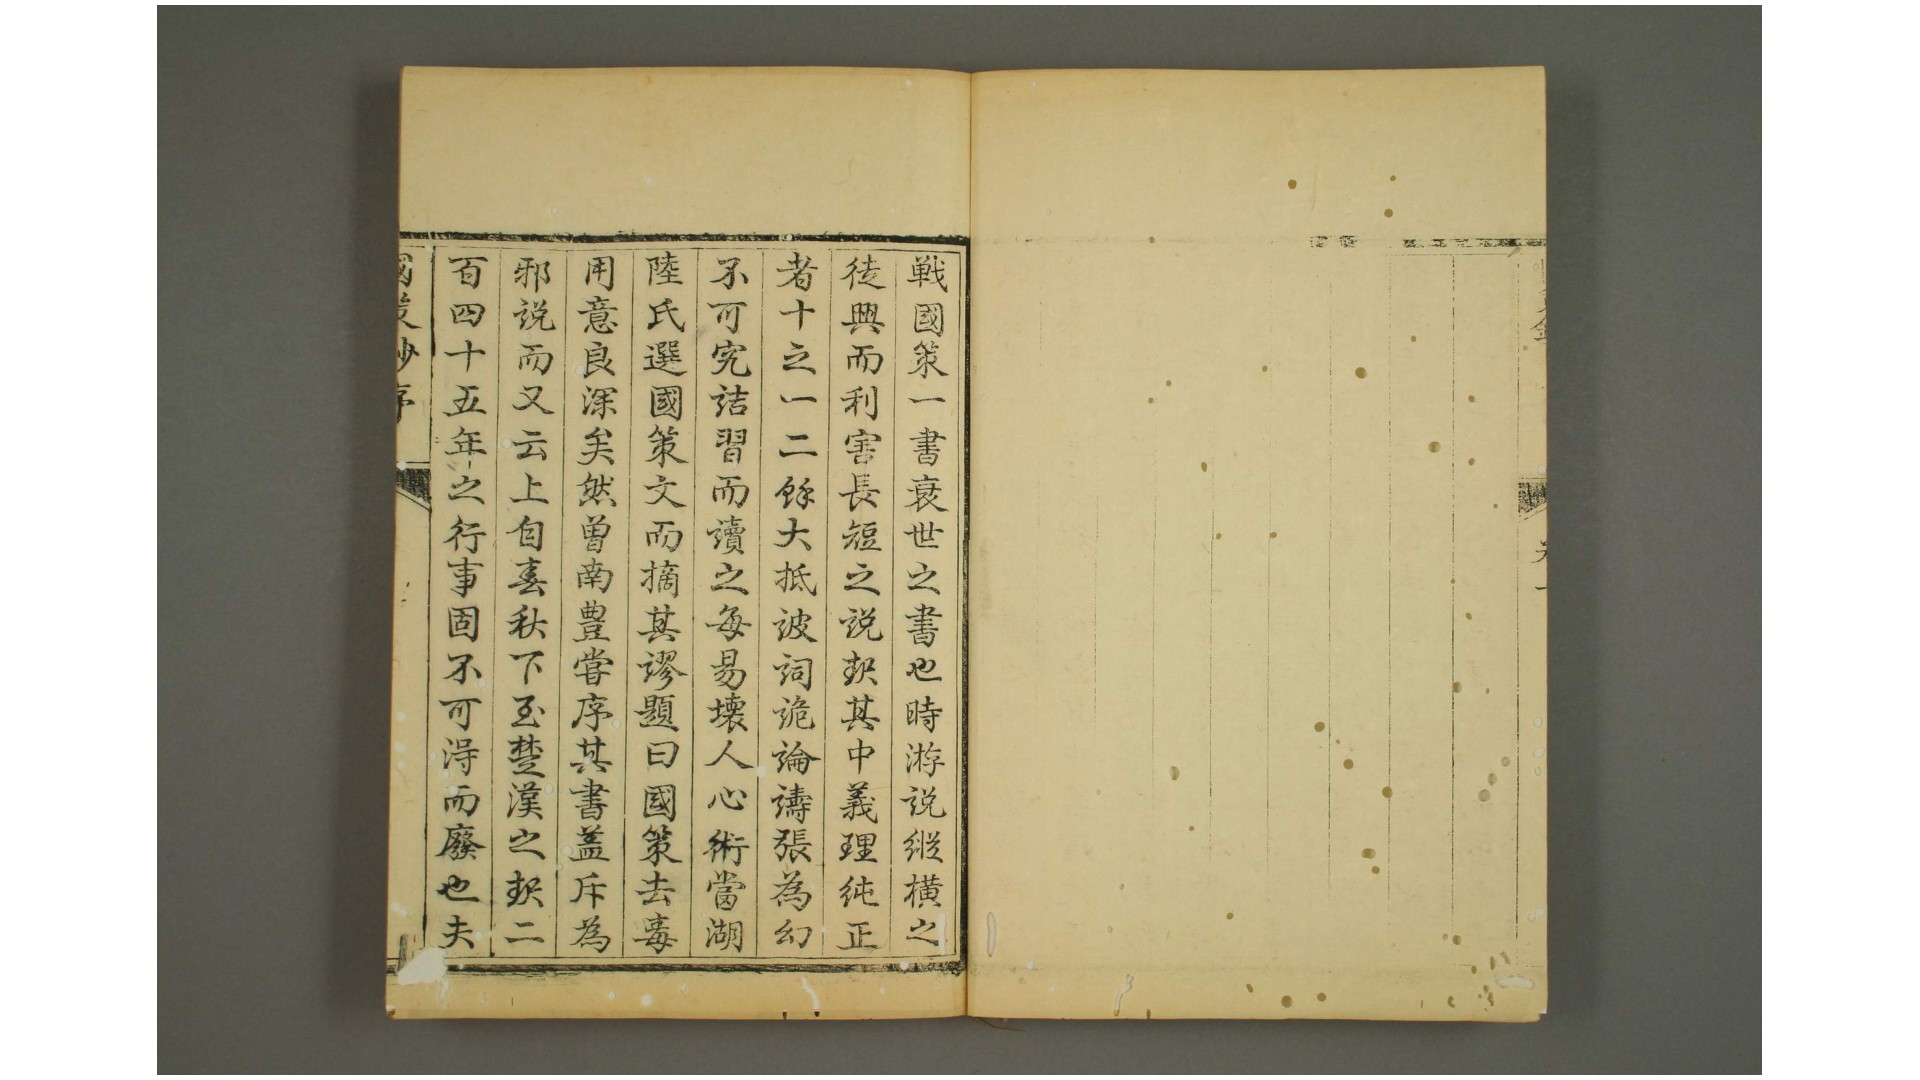 戰國策一書衰世之書也時游說縱橫之
徒興而利害長短之說熾其中義理純正
者十之一二餘大抵波詞詭論譸張為幻
不可究詰習而讀之每易壞人心術當湖
陸氏選國策文而摘其謬題曰國策去毒
用意良深矣然曾南豐嘗序其書盖斥為
邪說而又云上自春秋下至楚漢之起二
百四十五年之行事固不可得而廢也夫
國策抄序